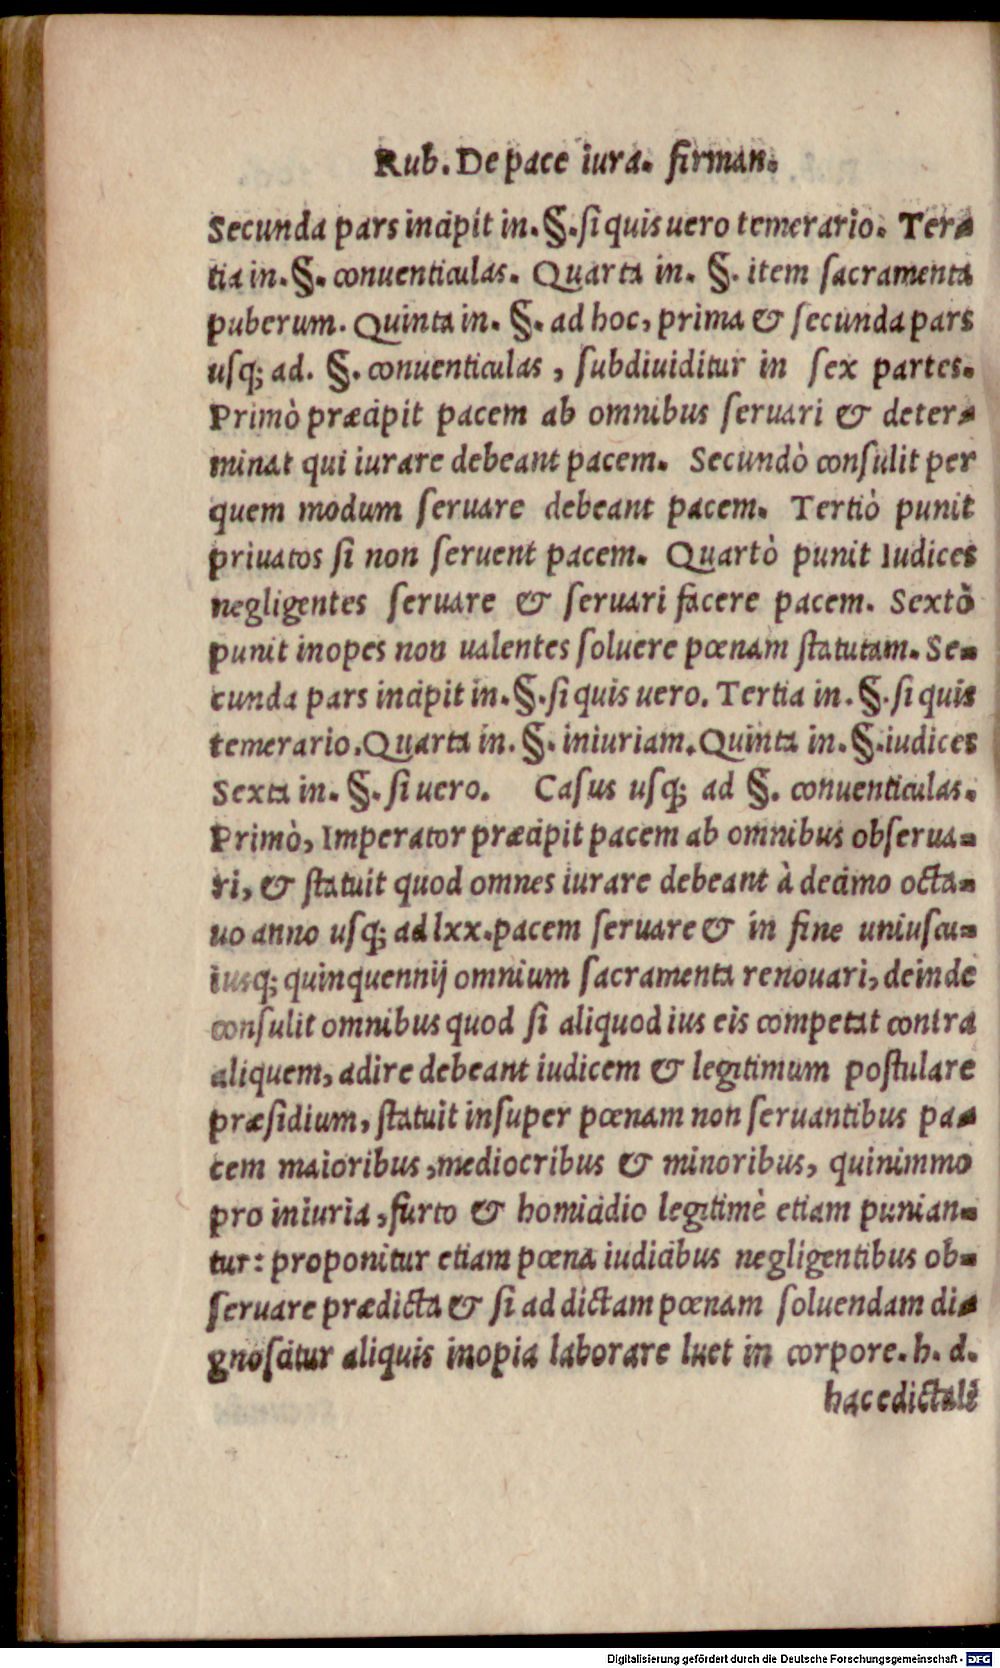 Rub. De pace iura. firman.
Secunda pars incipit in. §. si quis uero temerario. Ter-
tia in. §. conuenticulas. Quarta in. §. item sacramenta
puberum. Quinta in. §. ad hoc, prima & secunda pars
usq; ad. §. conuenticulas, subdiuiditur in sex partes.
Primò præcipit pacem ab omnibus seruari & deter-
minat qui iurare debeant pacem. Secundò consulit per
quem modum seruare debeant pacem. Tertiò punit
priuatos si non seruent pacem. Quartò punit Iudices
negligentes seruare & seruari facere pacem. Sextò
punit inopes non ualentes soluere pœnam statutam. Se-
cunda pars incipit in. §. si quis uero. Tertia in. §. si quis
temerario. Quarta in. §. iniuriam. Quinta in. §. iudices
Sexta in. §. si uero. Casus usq; ad §. conuenticulas.
Primò, Imperator præcipit pacem ab omnibus obserua-
ri, & statuit quod omnes iurare debeant à decimo octa-
uo anno usq; ad lxx. pacem seruare & in fine uniuscu-
iusq; quinquennij omnium sacramenta renouari, deinde
consulit omnibus quod si aliquod ius eis competat contra
aliquem, adire debeant iudicem & legitimum postulare
præsidium, statuit insuper pœnam non seruantibus pa-
cem maioribus, mediocribus & minoribus, quinimmo
pro iniuria, furto & homicidio legitimè etiam punian-
tur: proponitur etiam pœna iudicibus negligentibus ob-
seruare prædicta & si ad dictam pœnam soluendam di-
gnoscitur aliquis inopia laborare luet in corpore. h. d.
hac edictali
Digitalisierung gefördert durch die Deutsche Forschungsgemeinschaft - DFG